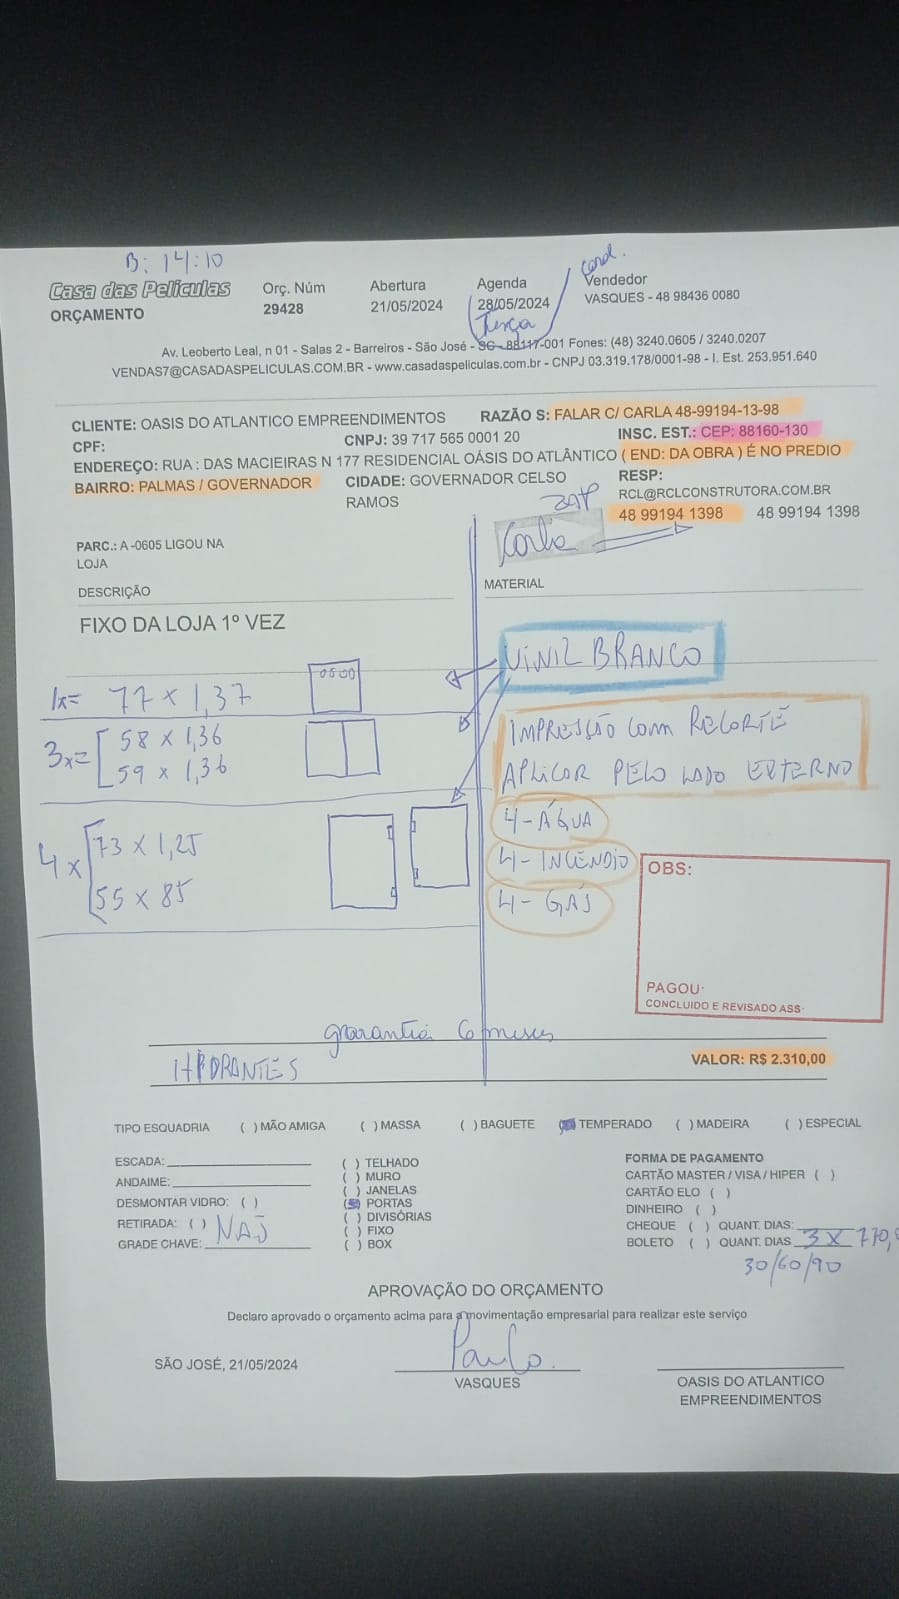 B: 14:10
Casa das Películas
ORÇAMENTO
Orç. Núm
29428
Abertura
21/05/2024
Agenda
28/05/2024
Terça
Vendedor
VASQUES - 48 98436 0080
Av. Leoberto Leal, n 01 - Salas 2 - Barreiros - São José - SC - 88117-001 Fones: (48) 3240.0605 / 3240.0207
VENDAS7@CASADASPELICULAS.COM.BR - www.casadaspeliculas.com.br - CNPJ 03.319.178/0001-98 - I. Est. 253.951.640
CLIENTE: OASIS DO ATLANTICO EMPREENDIMENTOS RAZÃO S: FALAR C/ CARLA 48-99194-13-98
CPF: CNPJ: 39 717 565 0001 20 INSC. EST.: CEP: 88160-130
ENDEREÇO: RUA : DAS MACIEIRAS N 177 RESIDENCIAL OÁSIS DO ATLÂNTICO ( END: DA OBRA ) É NO PREDIO
BAIRRO: PALMAS / GOVERNADOR CIDADE: GOVERNADOR CELSO RESP:
RAMOS RCL@RCLCONSTRUTORA.COM.BR
48 99194 1398 48 99194 1398
zap
Carla
PARC.: A -0605 LIGOU NA
LOJA
DESCRIÇÃO MATERIAL
FIXO DA LOJA 1º VEZ
VINIL BRANCO
1x= 77 x 1,37
3x= 58 x 1,36
59 x 1,36
IMPRESSÃO COM RECORTE
APLICAR PELO LADO EXTERNO
4x 73 x 1,25
55 x 85
4 - ÁGUA
4 - INCÊNDIO
4 - GÁS
OBS:
PAGOU:
CONCLUIDO E REVISADO ASS:
garantia 6 meses
HIDRANTES
VALOR: R$ 2.310,00
TIPO ESQUADRIA ( ) MÃO AMIGA ( ) MASSA ( ) BAGUETE TEMPERADO ( ) MADEIRA ( ) ESPECIAL
ESCADA:
ANDAIME:
DESMONTAR VIDRO: ( )
RETIRADA: ( ) NÃO
GRADE CHAVE:
( ) TELHADO
( ) MURO
( ) JANELAS
PORTAS
( ) DIVISÓRIAS
( ) FIXO
( ) BOX
FORMA DE PAGAMENTO
CARTÃO MASTER / VISA / HIPER ( )
CARTÃO ELO ( )
DINHEIRO ( )
CHEQUE ( ) QUANT. DIAS:
BOLETO ( ) QUANT. DIAS 3 X 770,
30/60/90
APROVAÇÃO DO ORÇAMENTO
Declaro aprovado o orçamento acima para a movimentação empresarial para realizar este serviço
SÃO JOSÉ, 21/05/2024
Paulo
VASQUES
OASIS DO ATLANTICO
EMPREENDIMENTOS